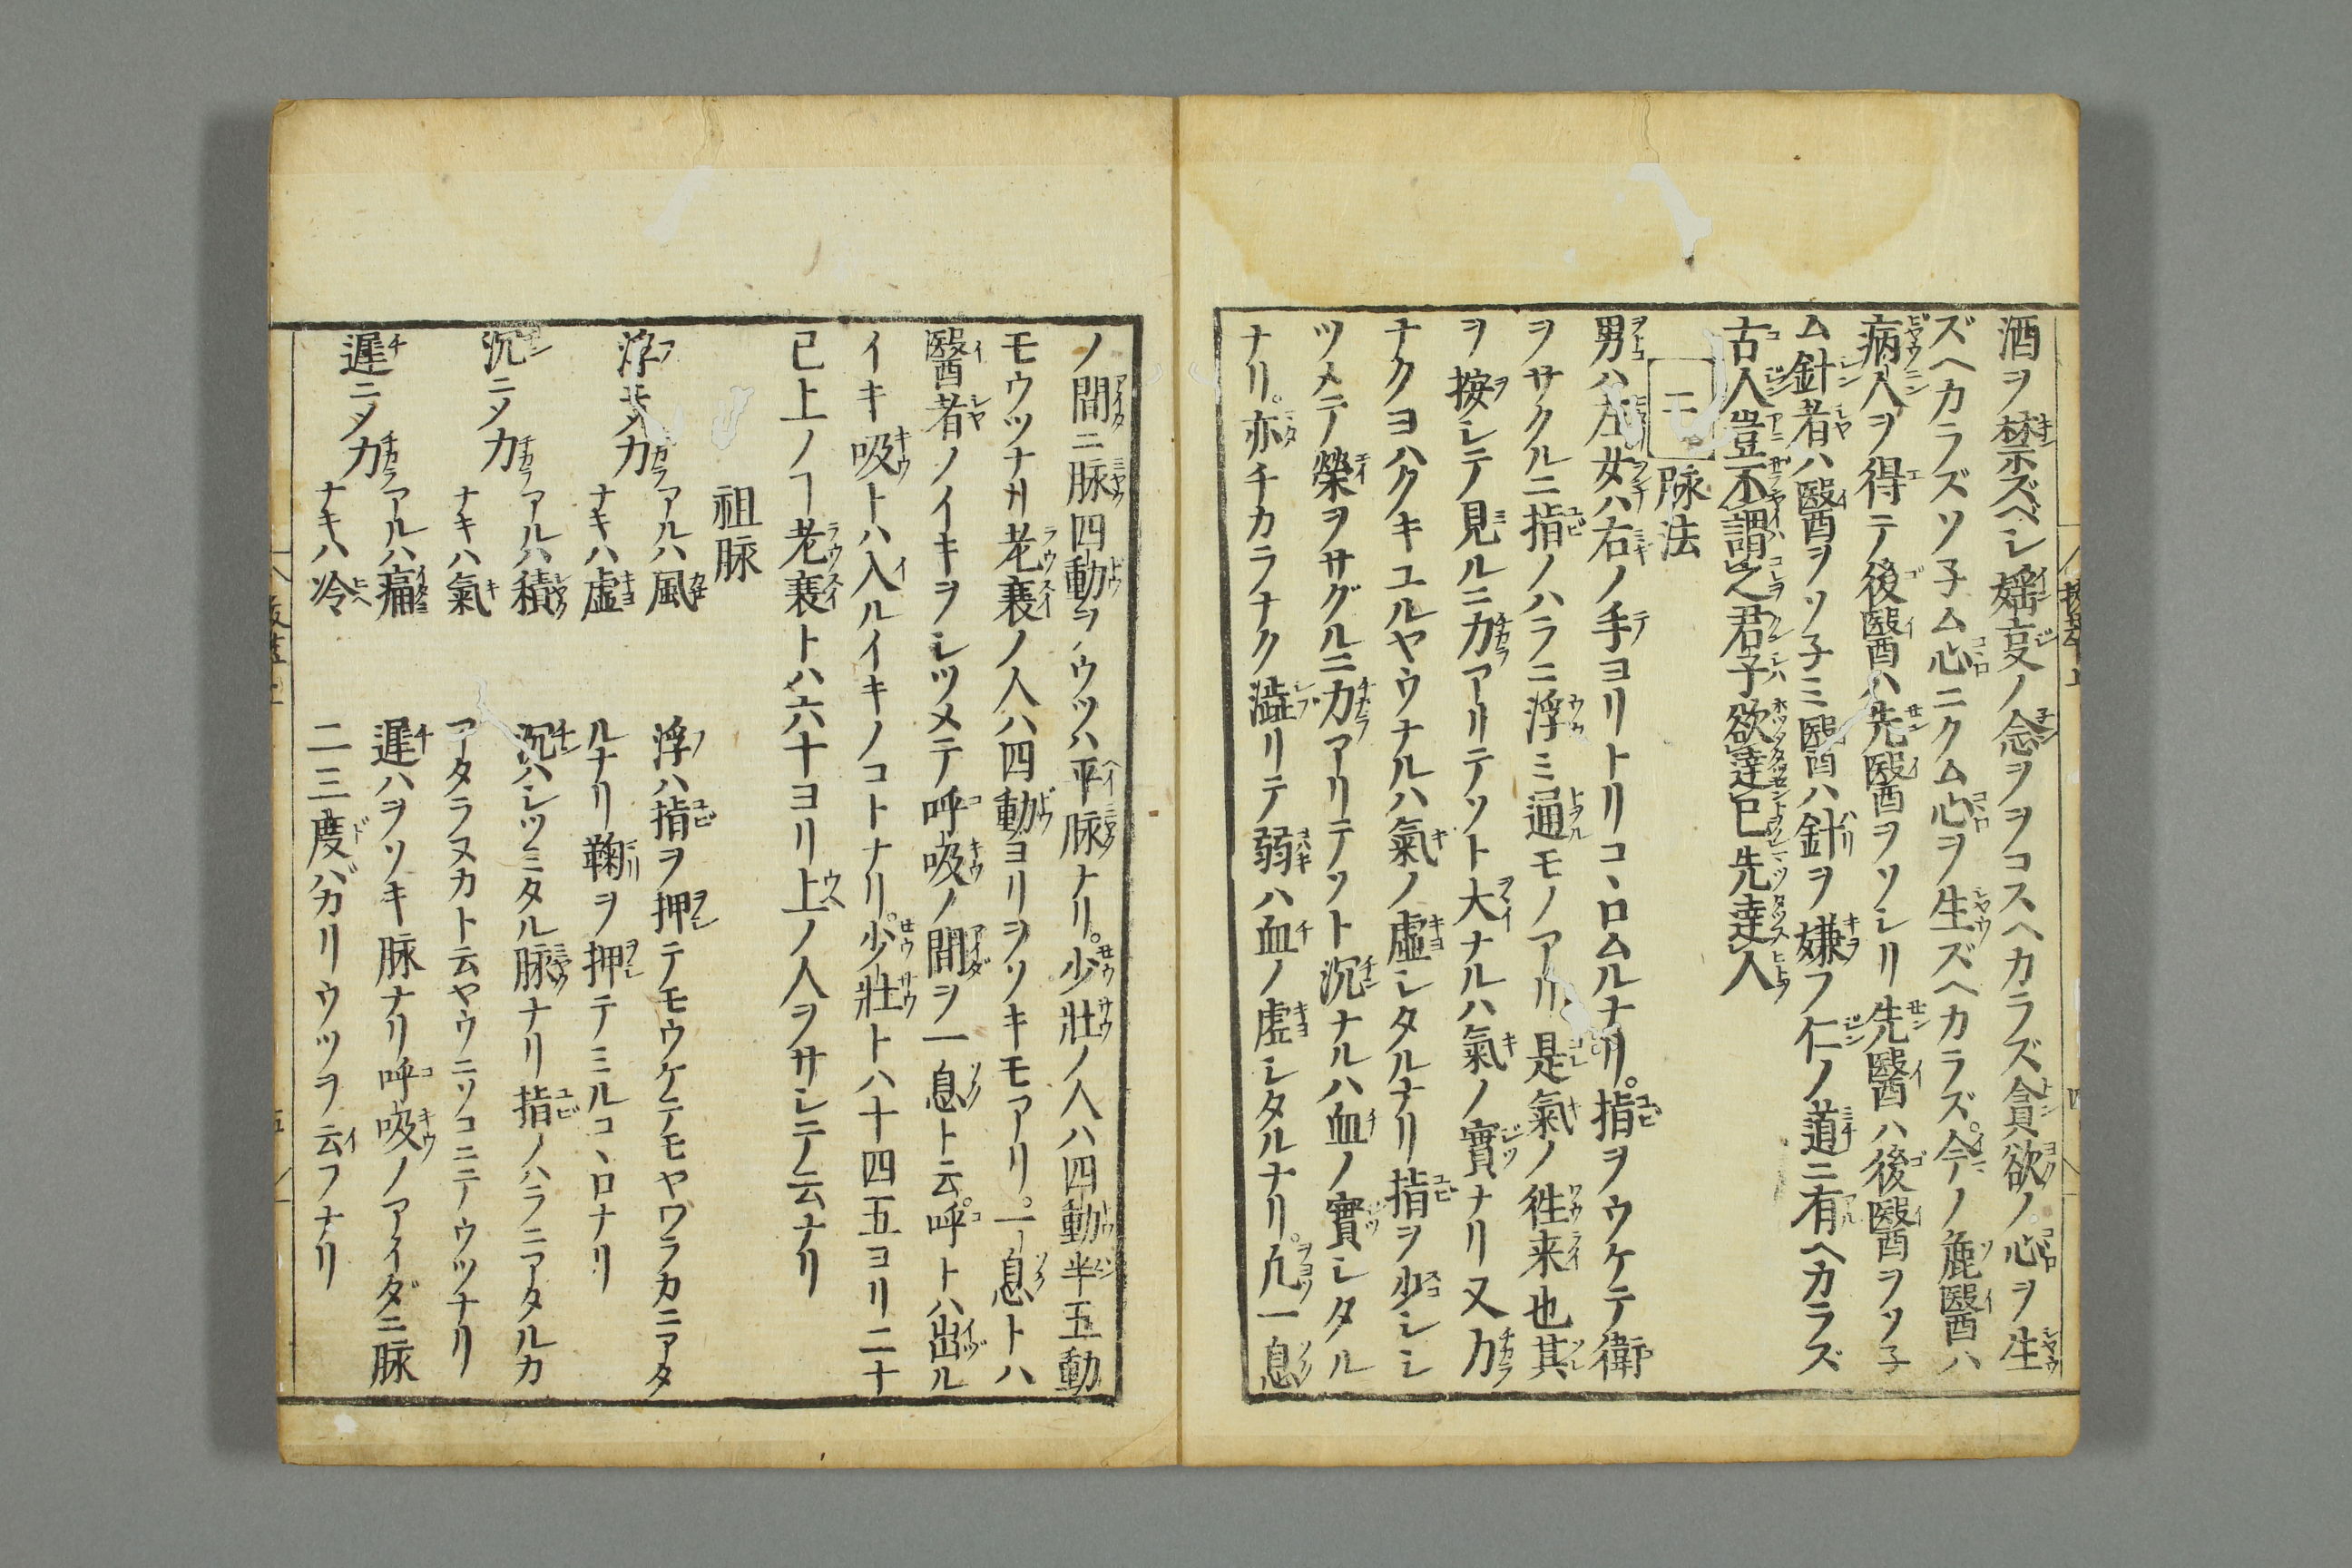 酒ヲ禁ズベシ婬亥ノ念ヲヲコスヘカラズ貪欲ノ心ヲ生
ズヘカラズソ子ム心ニクム心ヲ生ズヘカラズ今ノ麁醫ハ
病人ヲ得テ後醫ハ先醫ヲソシリ先醫ハ後醫ヲソ子
ム針者ハ醫ヲソ子ミ醫ハ針ヲ嫌フ仁ノ道ニ有ヘカラズ
古人豈不謂之君子欲達己先達人
モ 脉法
男ハ左女ハ右ノ手ヨリトリコヽロムルナリ。指ヲウケテ衛
ヲサクルニ指ノハラニ浮ミ通モノアリ是氣ノ徃来也其
ヲ按シテ見ルニ力アリテソト大ナルハ氣ノ實ナリ又力
ナクヨハクキユルヤウナルハ氣ノ虚シタルナリ指ヲ少シシ
ツメテ榮ヲサグルニ力アリテソト沉ナルハ血ノ實シタル
ナリ。亦チカラナク澁リテ弱ハ血ノ虚シタルナリ。凢一息
ノ間ニ脉四動ヲウツハ平脉ナリ。少壯ノ人ハ四動半五動
モウツナリ老衰ノ人ハ四動ヨリヲソキモアリ。一息トハ
醫者ノイキヲシツメテ呼吸ノ間ヲ一息ト云。呼トハ出ル
イキ吸トハ入ルイキノコトナリ。少壯トハ十四五ヨリ二十
已上ノヿ老衰トハ六十ヨリ上ノ人ヲサシテ云ナリ
祖脉
浮ニメ力 アルハ風 ナキハ虚
浮ハ指ヲ押テモウケテモヤワラカニアタ
ルナリ鞠ヲ押テミルコヽロナリ
沉ニメ力 アルハ積 ナキハ氣
沉ハシツミタル脉ナリ指ノハラニアタルカ
アタラヌカト云ヤウニソコニテウツナリ
遲ニメ力 アルハ痛 ナキハ冷
遲ハヲソキ脉ナリ呼吸ノアイダニ脉
二三度バカリウツヲ云フナリ